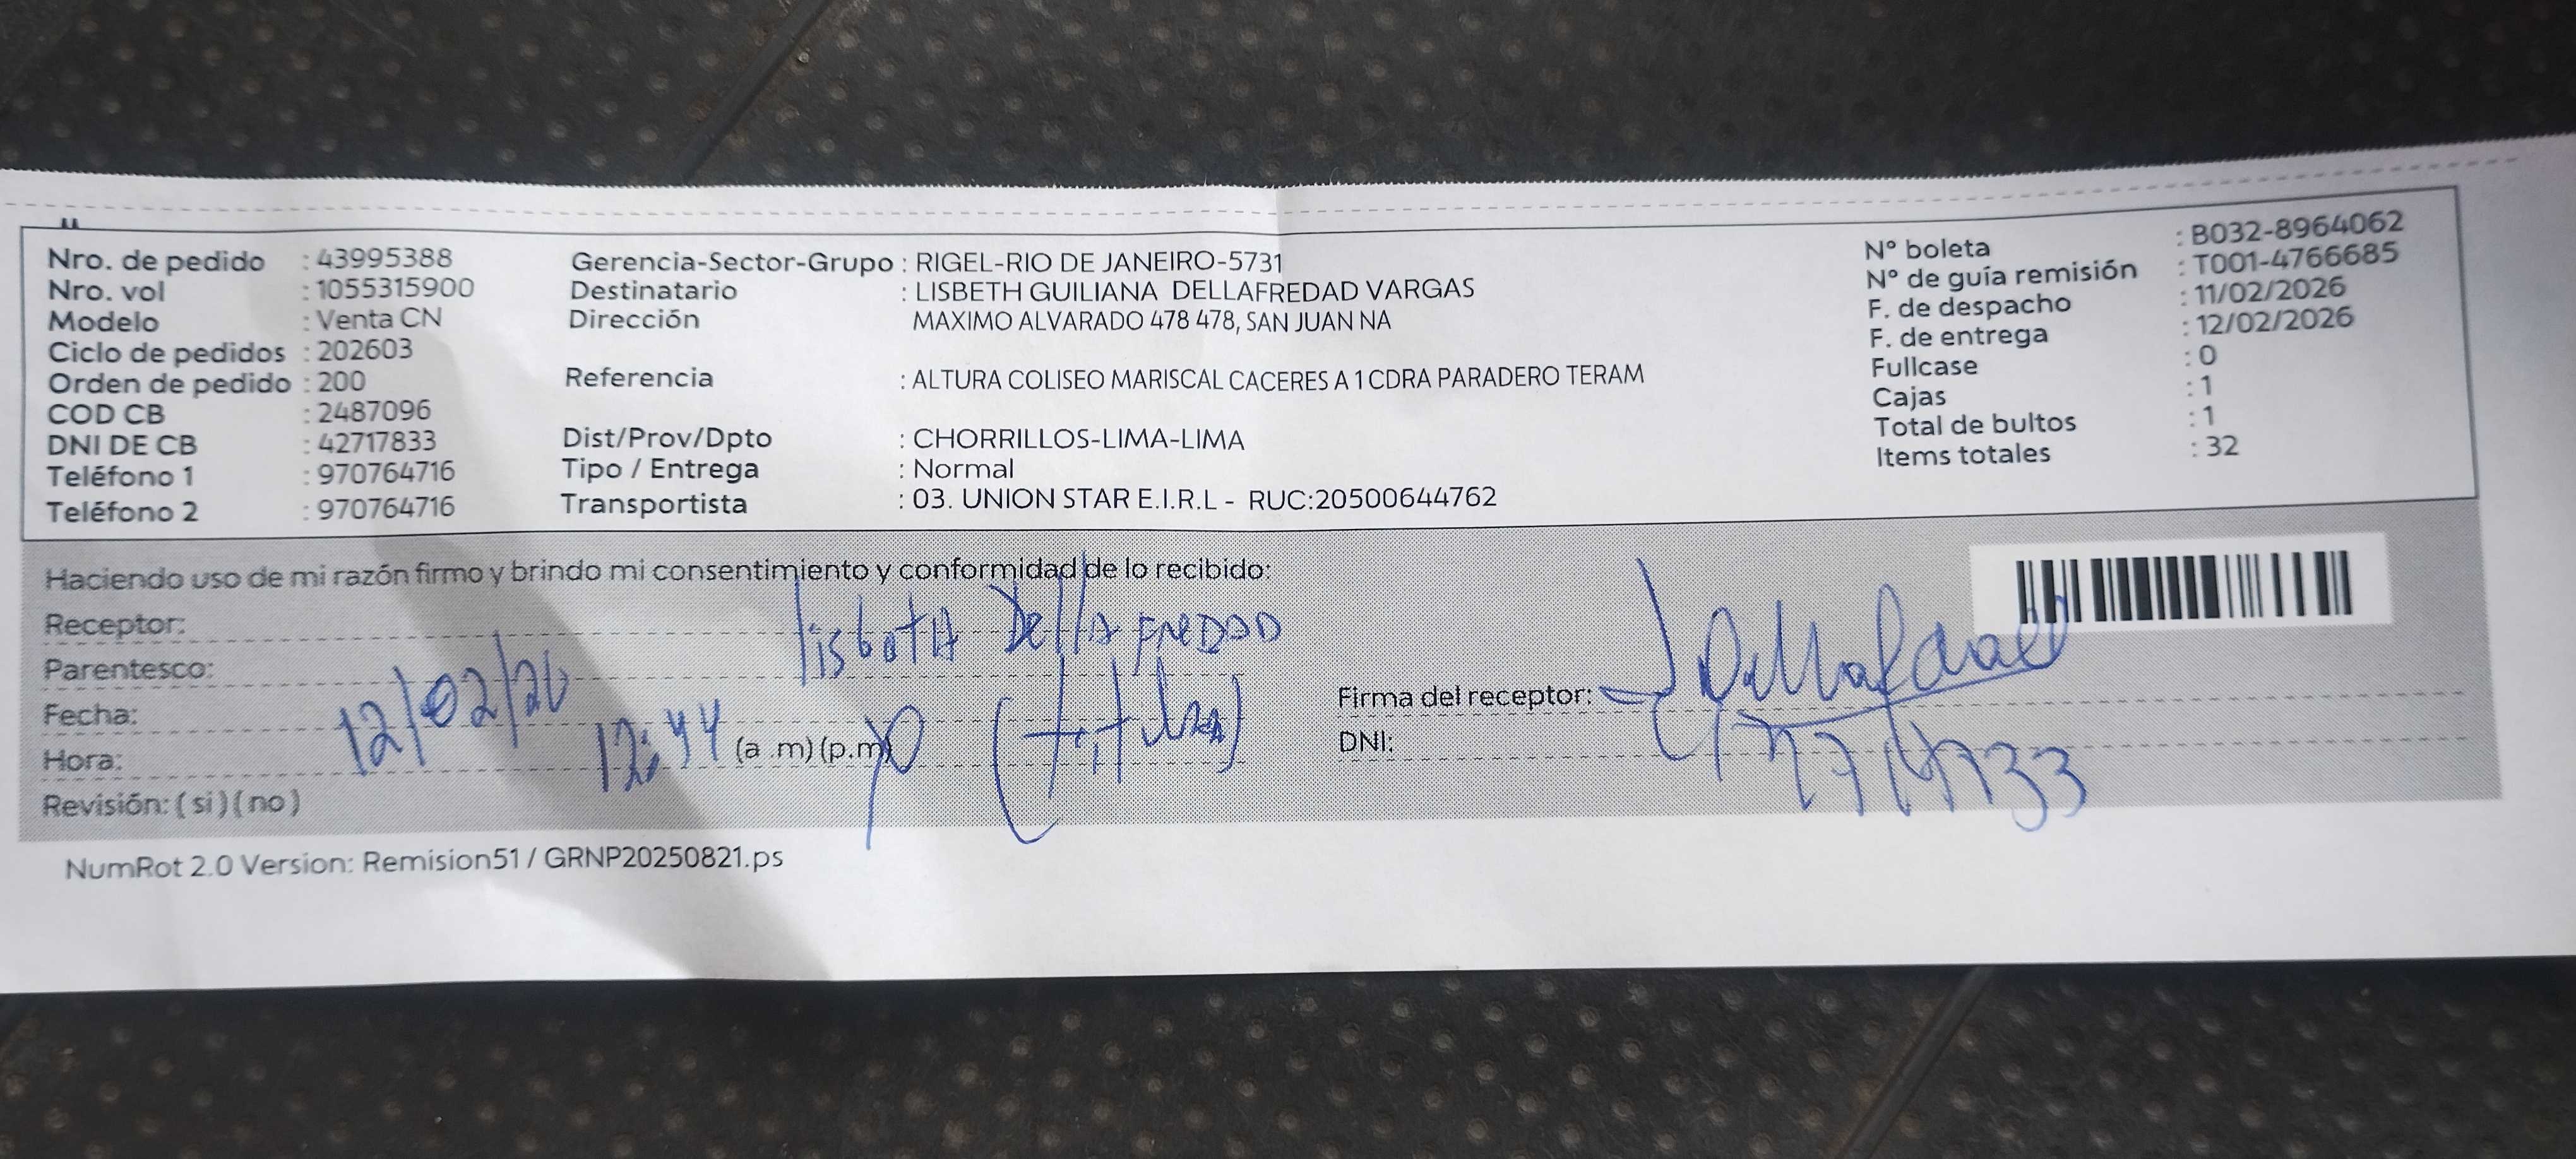 Nro. de pedido : 43995388
Nro. vol : 1055315900
Modelo : Venta CN
Ciclo de pedidos : 202603
Orden de pedido : 200
COD CB : 2487096
DNI DE CB : 42717833
Teléfono 1 : 970764716
Teléfono 2 : 970764716
Gerencia-Sector-Grupo : RIGEL-RIO DE JANEIRO-5731
Destinatario : LISBETH GUILIANA DELLAFREDAD VARGAS
Dirección MAXIMO ALVARADO 478 478, SAN JUAN NA
Referencia : ALTURA COLISEO MARISCAL CACERES A 1 CDRA PARADERO TERAM
Dist/Prov/Dpto : CHORRILLOS-LIMA-LIMA
Tipo / Entrega : Normal
Transportista : 03. UNION STAR E.I.R.L - RUC:20500644762
N° boleta : B032-8964062
N° de guía remisión : T001-4766685
F. de despacho : 11/02/2026
F. de entrega : 12/02/2026
Fullcase : 0
Cajas : 1
Total de bultos : 1
Items totales : 32
Haciendo uso de mi razón firmo y brindo mi consentimiento y conformidad de lo recibido:
Receptor: lisbetH DellAfREDAD
Parentesco: yo (titular)
Fecha: 12/02/26
Hora: 12:44 (a .m) (p.m)
Revisión: ( si ) ( no )
Firma del receptor:
DNI:
NumRot 2.0 Version: Remision51 / GRNP20250821.ps